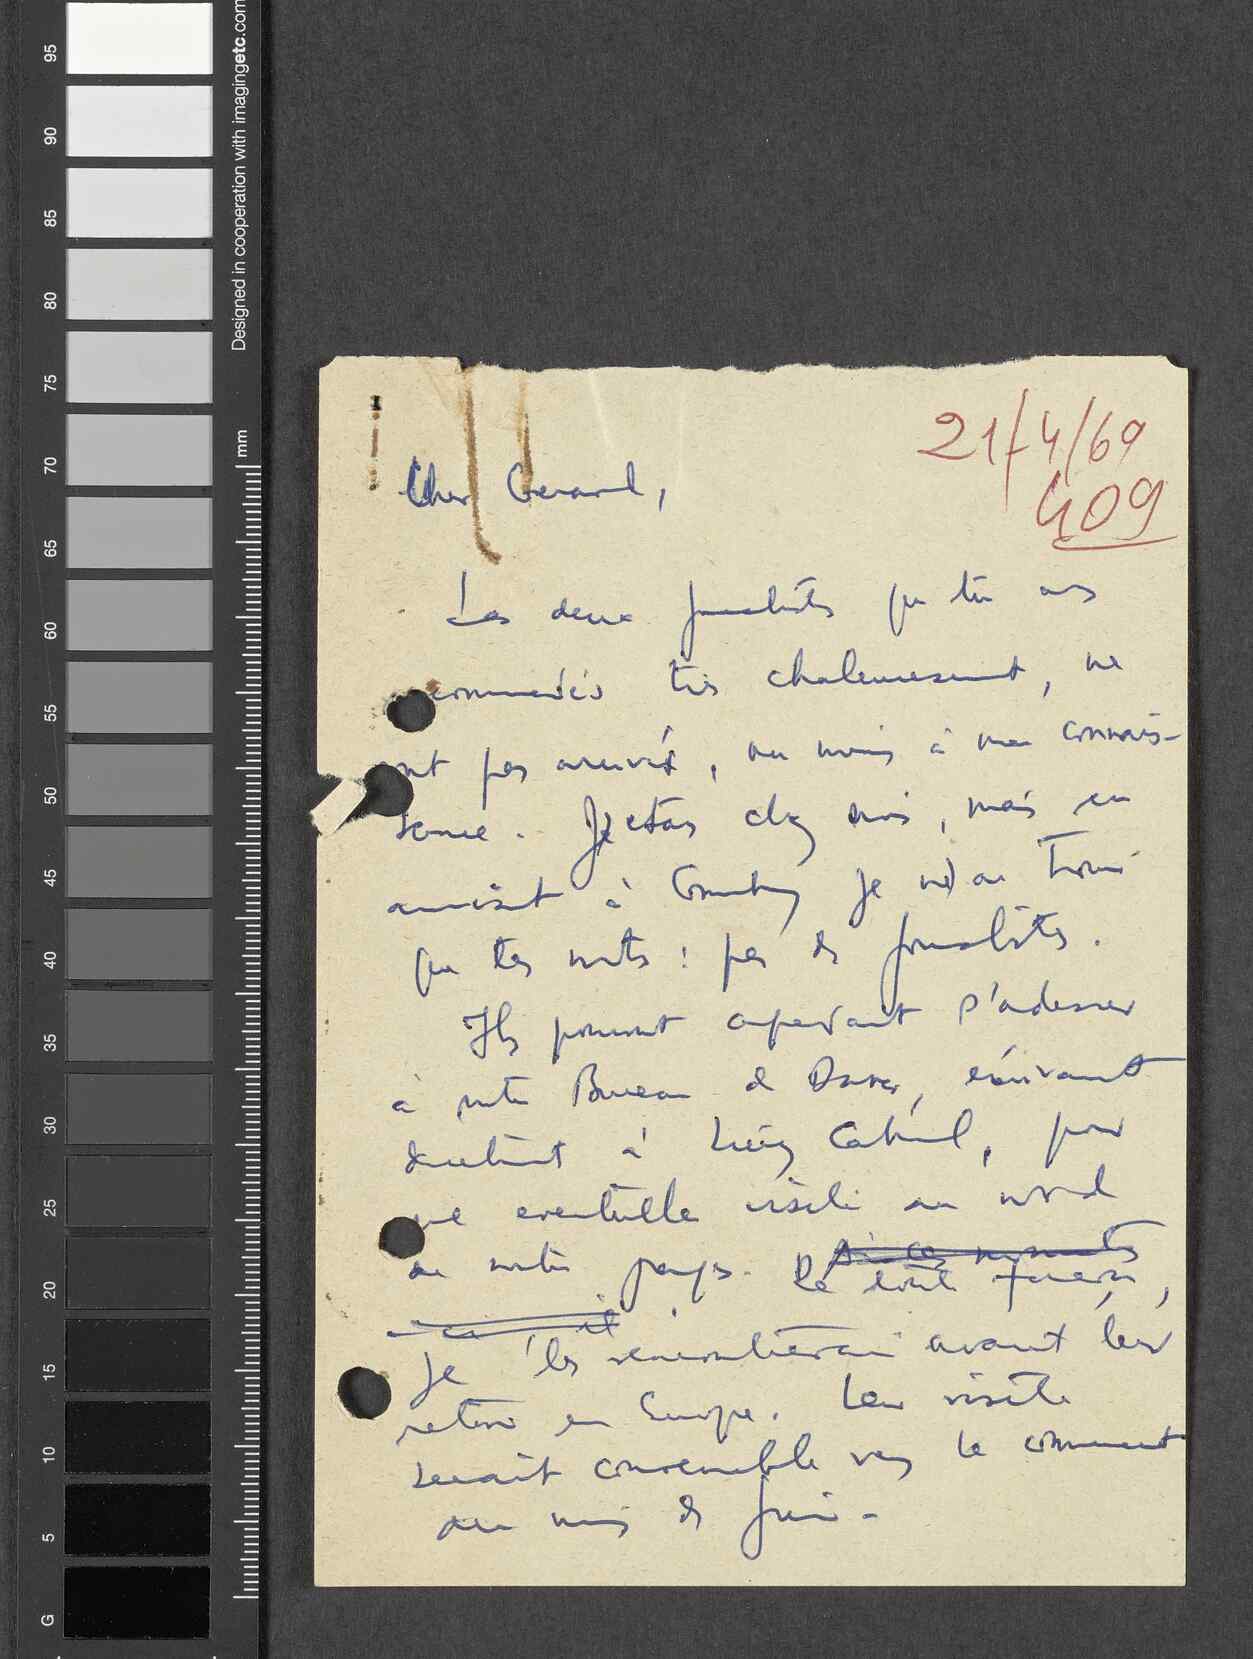 95
90
85
80
75
70
65
60
55
50
45
40
35
30
25
20
15
10
5
G
Designed in cooperation with imagingetc.com
mm
21/4/69
409
Cher Gerard,
Les deux journalistes que tu as
recommandés très chaleureusement, ne
sont pas arrivés, au moins à ma connais-
sance. J'etais chez moi, mais en
arrivant à Conakry je n'ai trouvé
que tes mots : pas de journalistes.
Ils pourront cependant s'adresser
à notre Bureau de Dakar, écrivant
directement à Luiz Cabral, pour
une eventuelle visite au nord
de notre pays. Si ces
De toute façon,
je les rencontrerai avant leur
retour en Europe. Leur visite
serait convenable vers le commencement
du mois de Juin.